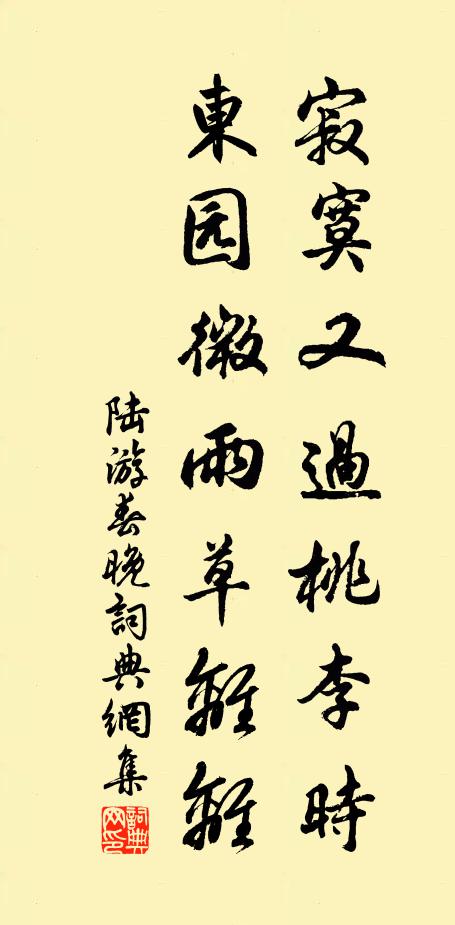 寂寞又過桃李時
東园微雨草離離
陸游春晚詞典網集
詞典网印